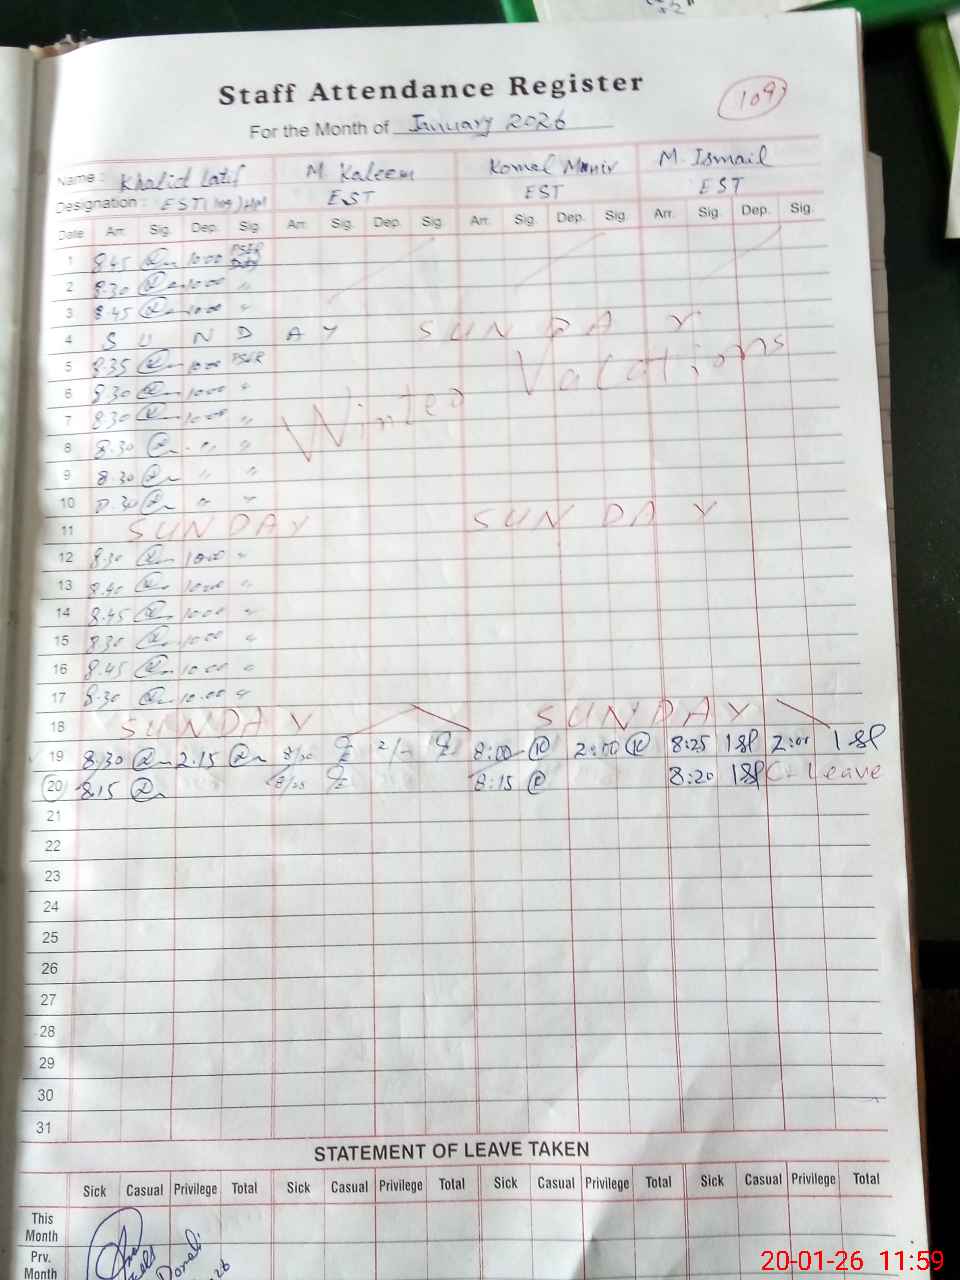 Staff Attendance Register
109
For the Month of January 2026
Name : Khalid Latif M. Kaleem Komal Munir M. Ismail
Designation : EST EST EST EST
Date Arr. Sig. Dep. Sig. Arr. Sig. Dep. Sig. Arr. Sig. Dep. Sig. Arr. Sig. Dep. Sig.
1 8.45 1000
2 8.30 1000 "
3 8.45 1000 "
4 SUNDAY SUNDAY
5 8.35 1000
6 8.30 1000 "
7 8.30 1000 "
Winter Vacations
8 8.30 " "
9 8.30 " "
10 8.30 " "
11 SUNDAY SUNDAY
12 8.30 1000 "
13 8.40 1000 "
14 8.45 1000 "
15 830 1000 "
16 8.45 10.00 "
17 8.30 10.00 "
18 SUNDAY SUNDAY
19 8/30 2.15 8/30 2/- 8:00 2:00 8:25 2:00
20 8.15 8/25 8:15 8:20 C. Leave
21
22
23
24
25
26
27
28
29
30
31
STATEMENT OF LEAVE TAKEN
Sick Casual Privilege Total Sick Casual Privilege Total Sick Casual Privilege Total Sick Casual Privilege Total
This Month
Prv. Month
20-01-26 11:59